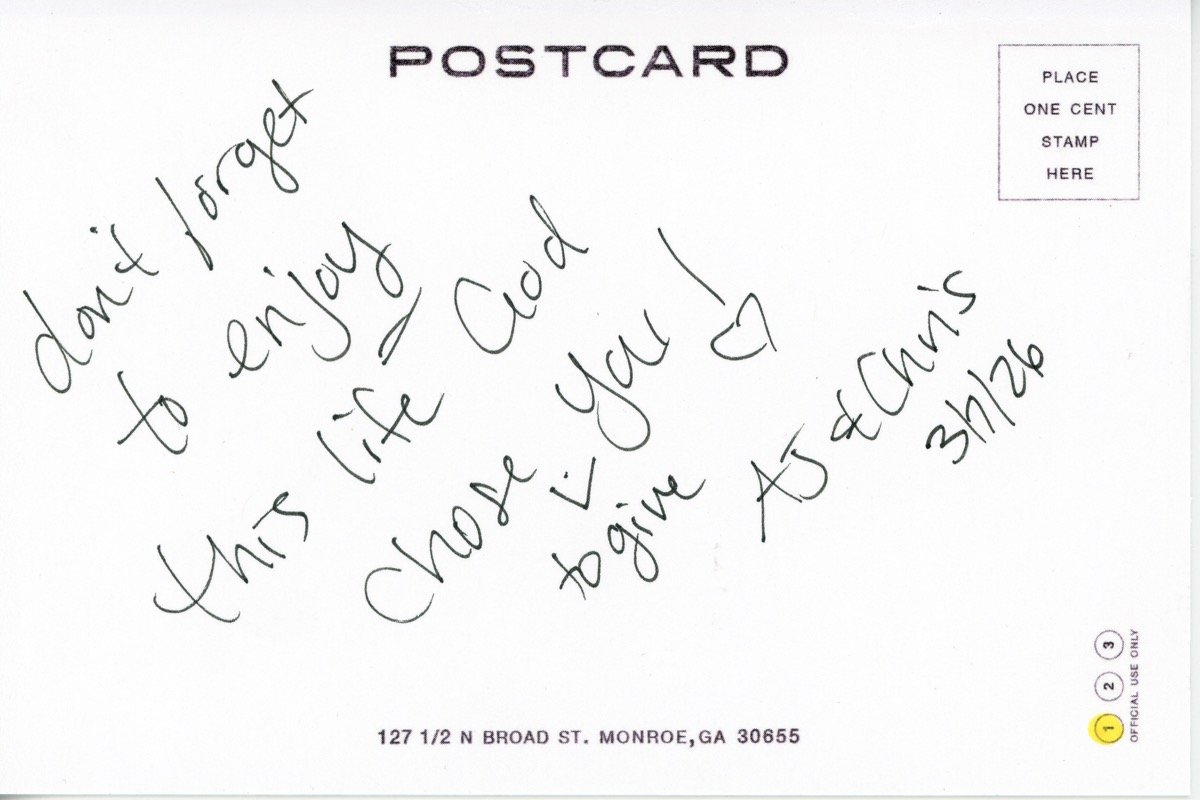 POSTCARD
PLACE
ONE CENT
STAMP
HERE
don't forget
to enjoy
this life God
chose to give you!
AJ & Chris
3/7/26
127 1/2 N BROAD ST. MONROE, GA 30655
1 2 3
OFFICIAL USE ONLY